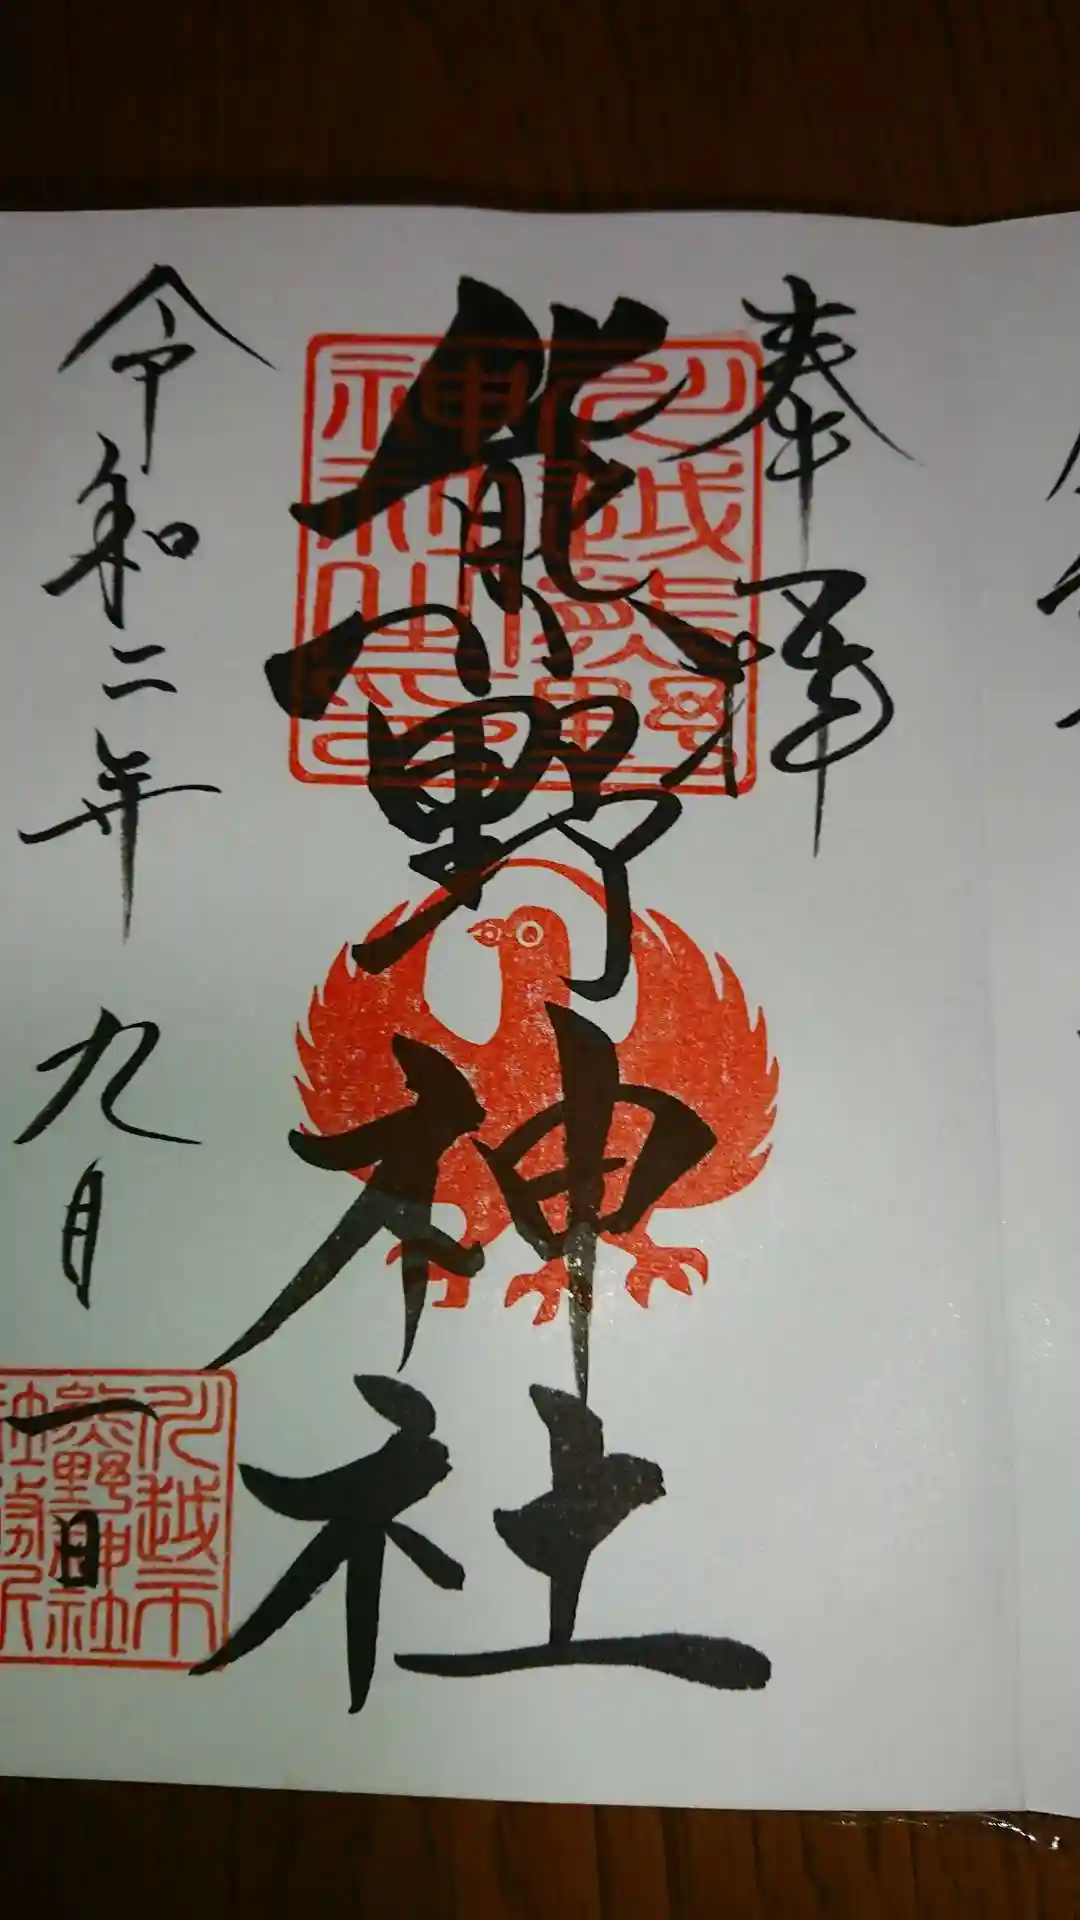 奉拝
熊野神社
川越熊野神社之印
令和二年九月一日
川越市
熊野神社
社務所